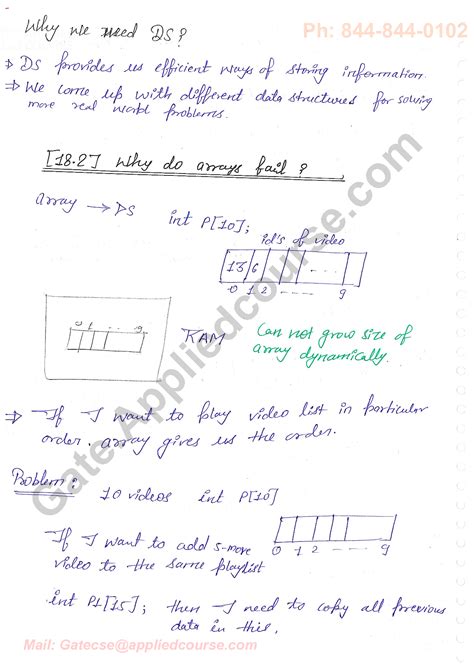 Ph: 844-844-0102
Why we need DS?
⇒ DS provides us efficient ways of storing information.
⇒ We come up with different data structures for solving
more real world problems.
[18.2] Why do arrays fail?
array → DS
int P[10];
id's of video
13 6 - - -
0 1 2 - - - - 9
0 1 - - 9
RAM
Can not grow size of
array dynamically.
⇒ If I want to play video list in particular
order. array gives us the order.
Problem:
10 videos int P[10]
If I want to add 5-more
video to the same playlist
0 1 2 - - - 9
int P1[15]; then I need to copy all previous
data in this.
Gate.Appliedcourse.com
Mail: Gatecse@appliedcourse.com